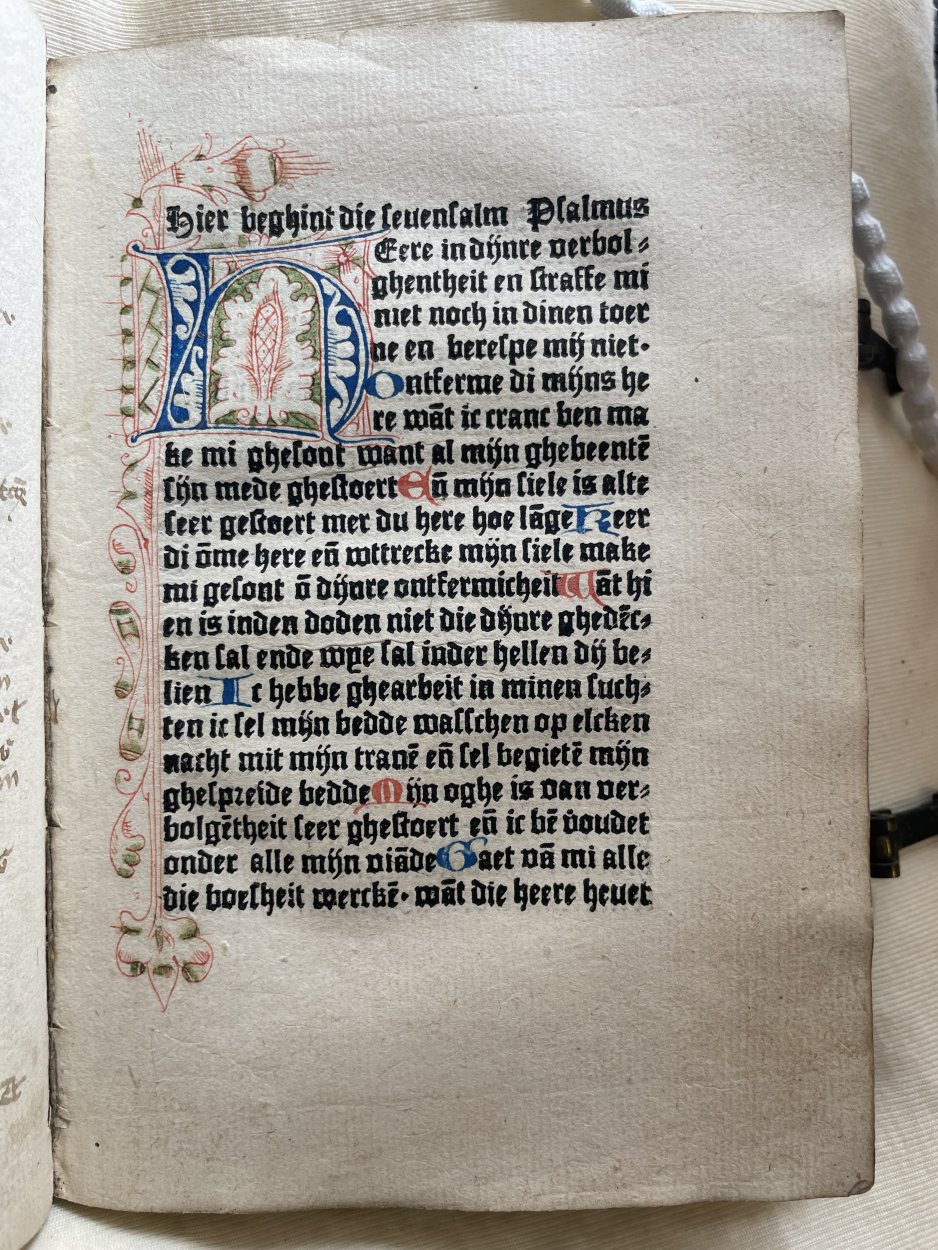 Hier beghint die seuensalm Psalmus
HEere in dijnre verbol⸗
ghentheit en straffe mi
niet noch in dinen toer
ne en berespe mij niet·
Ontferme di mijns he
re wāt ic cranc ben ma
ke mi ghesont want al mijn ghebeentē
sijn mede ghestoert Eñ mijn siele is alte
seer gestoert mer du here hoe lāge Keer
di ōme here eñ wttrecke mijn siele make
mi gesont ō dijnre ontfermicheit Wāt hi
en is inden doden niet die dijnre ghedēc⸗
ken sal ende wye sal inder hellen dij be⸗
lien Ic hebbe ghearbeit in minen such⸗
ten ic sel mijn bedde wasschen op elcken
nacht mit mijn tranē eñ sel begietē mijn
ghespreide bedde Mijn oghe is van ver⸗
bolgētheit seer ghestoert eñ ic bē v̄oudet
onder alle mijn viāde Gaet vā mi alle
die boesheit werckē· wāt die heere heuet